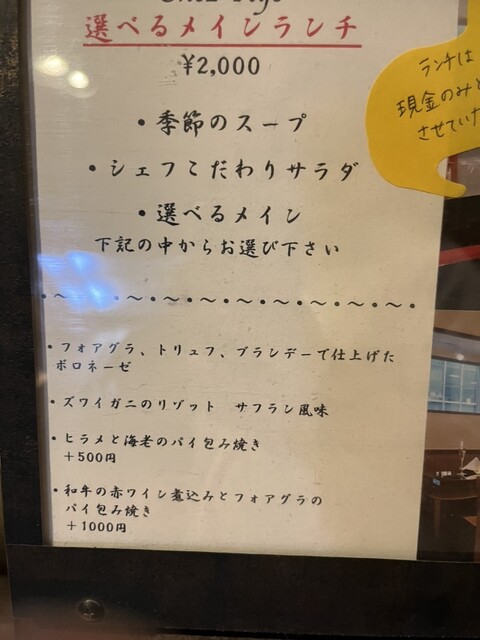 選べるメインランチ
¥2,000
・季節のスープ
・シェフこだわりサラダ
・選べるメイン
下記の中からお選び下さい
・フォアグラ、トリュフ、ブランデーで仕上げた
ボロネーゼ
・ズワイガニのリゾット サフラン風味
・ヒラメと海老のパイ包み焼き
+500円
・和牛の赤ワイン煮込みとフォアグラの
パイ包み焼き
+1000円
ランチは
現金のみと
させていた